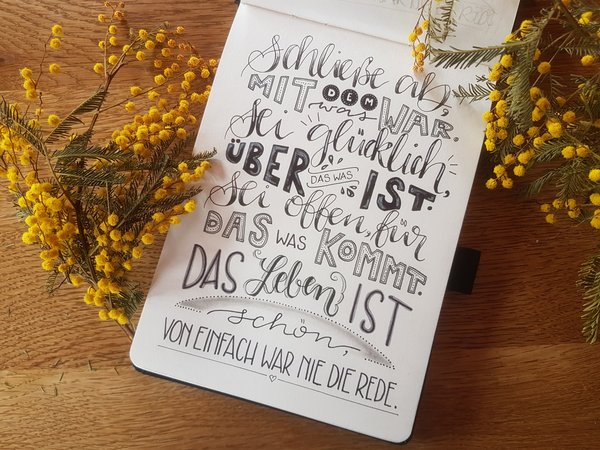 Schließe ab,
MIT DEM was WAR.
Sei glücklich,
ÜBER DAS WAS IST.
Sei offen, für
DAS WAS KOMMT.
DAS Leben IST
schön,
VON EINFACH WAR NIE DIE REDE.